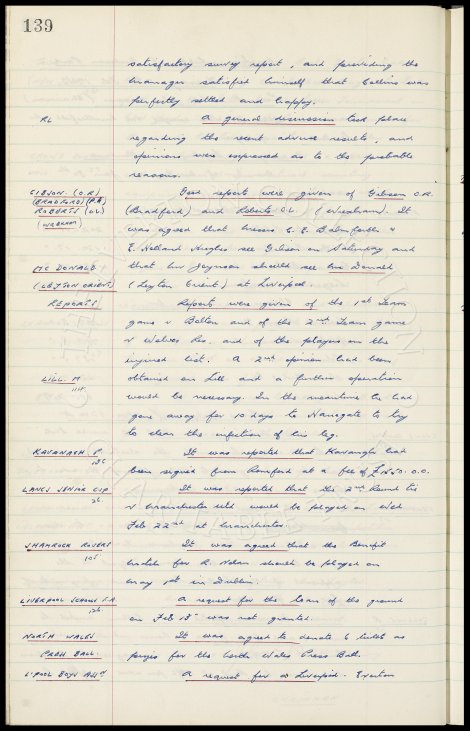 139
satisfactory survey report, and providing the
manager satisfied himself that Collins was
perfectly settled and happy.
RL A general discussion took place
regarding the recent adverse results, and
opinions were expressed as to the probable
reasons.
GIBSON. (O.R) Good reports were given of Gibson O.R.
(BRADFORD)(P.A) (Bradford) and Roberts O.L (Wrexham). It
ROBERTS (O.L)
(WREXHAM) was agreed that Messrs C. E. Balmforth &
E. Holland Hughes see Gibson on Saturday and
MC DONALD that Mr Joynson should see Mc Donald
(LEYTON ORIENT) (Leyton Orient) at Liverpool.
REPORTS Reports were given of the 1st Team
game v Bolton and of the 2nd Team game
v Wolves Res. and of the players on the
injured list. A 2nd opinion had been
LILL. M obtained on Lill and a further operation
would be necessary. In the meantime he had
gone away for 10 days to Harrogate to try
to clear the infection of his leg.
KAVANAGH P. It was reported that Kavanagh had
been signed from Romford at a fee of
LANCS SENIOR CUP It was reported that the 2nd Round tie
v Manchester Utd would be played on Wed
Feb 22nd at Manchester.
SHAMROCK ROVERS It was agreed that the Benefit
match for R. Nolan should be played on
May 1st in Dublin.
LIVERPOOL SCHOOLS F.A. A request for the loan of the ground
on Feb 18 was not granted.
NORTH WALES It was agreed to donate 6 tickets as
PRESS BALL. prizes for the North Wales Press Ball.
L'POOL BOYS ASSN A request for a Liverpool - Everton